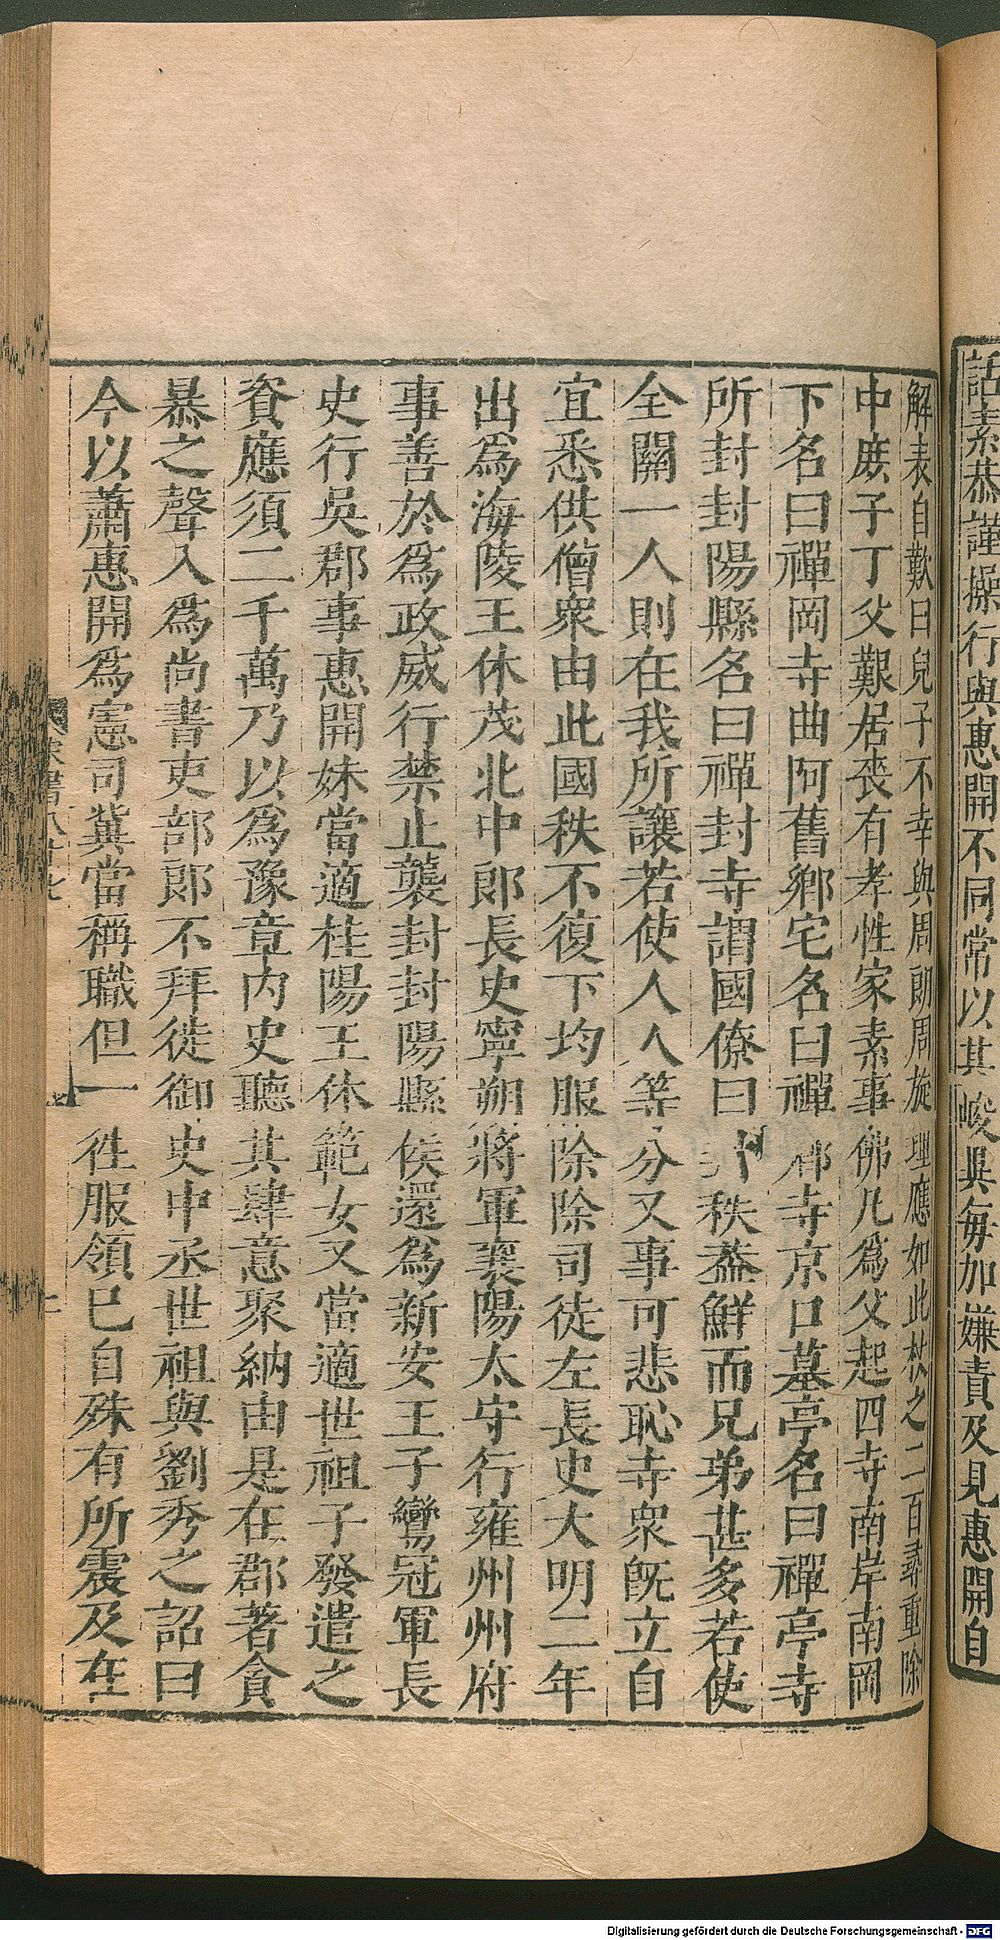 話素恭謹操行與惠開不同常以其峻異每加嫌責及見惠開自
解表自歎曰兒子不幸與周朗周旋理應如此杖之二百尋重除
中庶子丁父艱居喪有孝性家素事佛凡爲父起四寺南岸南岡
下名曰禪岡寺曲阿舊鄉宅名曰禪鄉寺京口墓亭名曰禪亭寺
所封封陽縣名曰禪封寺謂國僚曰封秩葢鮮而兄弟甚多若使
全關一人則在我所讓若使人人等分又事可悲恥寺衆旣立自
宜悉供僧衆由此國秩不復下均服除除司徒左長史大明二年
出爲海陵王休茂北中郎長史寧朔將軍襄陽太守行雍州州府
事善於爲政威行禁止襲封封陽縣侯還爲新安王子鸞冠軍長
史行吳郡事惠開妹當適桂陽王休範女又當適世祖子發遣之
資應須二千萬乃以爲豫章內史聽其肆意聚納由是在郡著貪
暴之聲入爲尚書吏部郎不拜徙御史中丞世祖與劉秀之詔曰
今以蕭惠開爲憲司冀當稱職但一徃服領已自殊有所震及在
宋書八十七
Digitalisierung gefördert durch die Deutsche Forschungsgemeinschaft - DFG